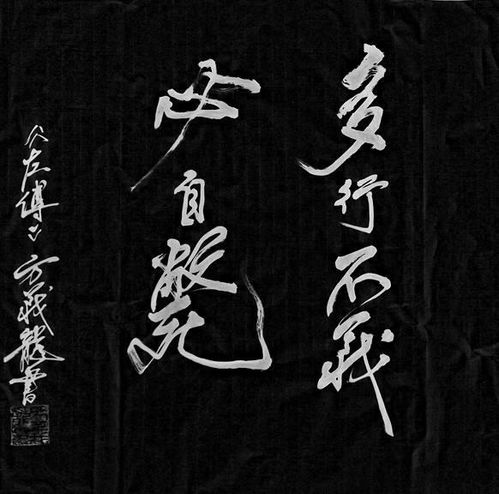 多行不義
必自斃
《左傳》方義龍書